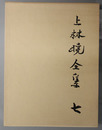 上林暁全集 七